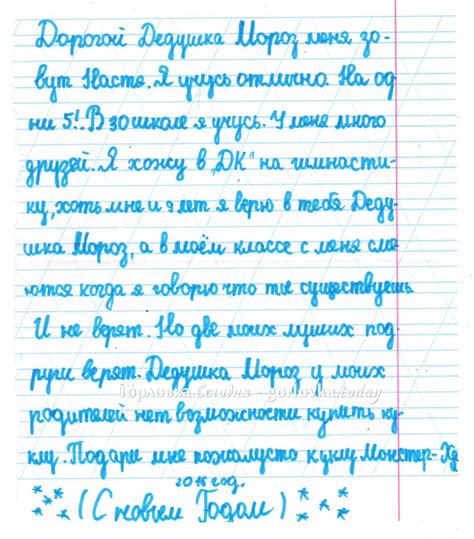 Дорогой Дедушка Мороз меня зо-
вут Настя. Я учусь отлично. На од
ни 5! В 30 школе я учусь. У меня много
друзей. Я хожу в "ДК" на гимнасти-
ку, хоть мне и 9 лет я верю в тебя Деду-
шка Мороз, а в моём классе с меня сме
ются когда я говорю что ты существуешь
И не верят. Но две моих лучших под
руги верят. Дедушка Мороз у моих
Горловка.Сегодня - gorlovka.today
родителей нет возможности купить ку-
клу. Подари мне пожалусто куклу Монстер-Ху
2016 год.
(С новым Годом)